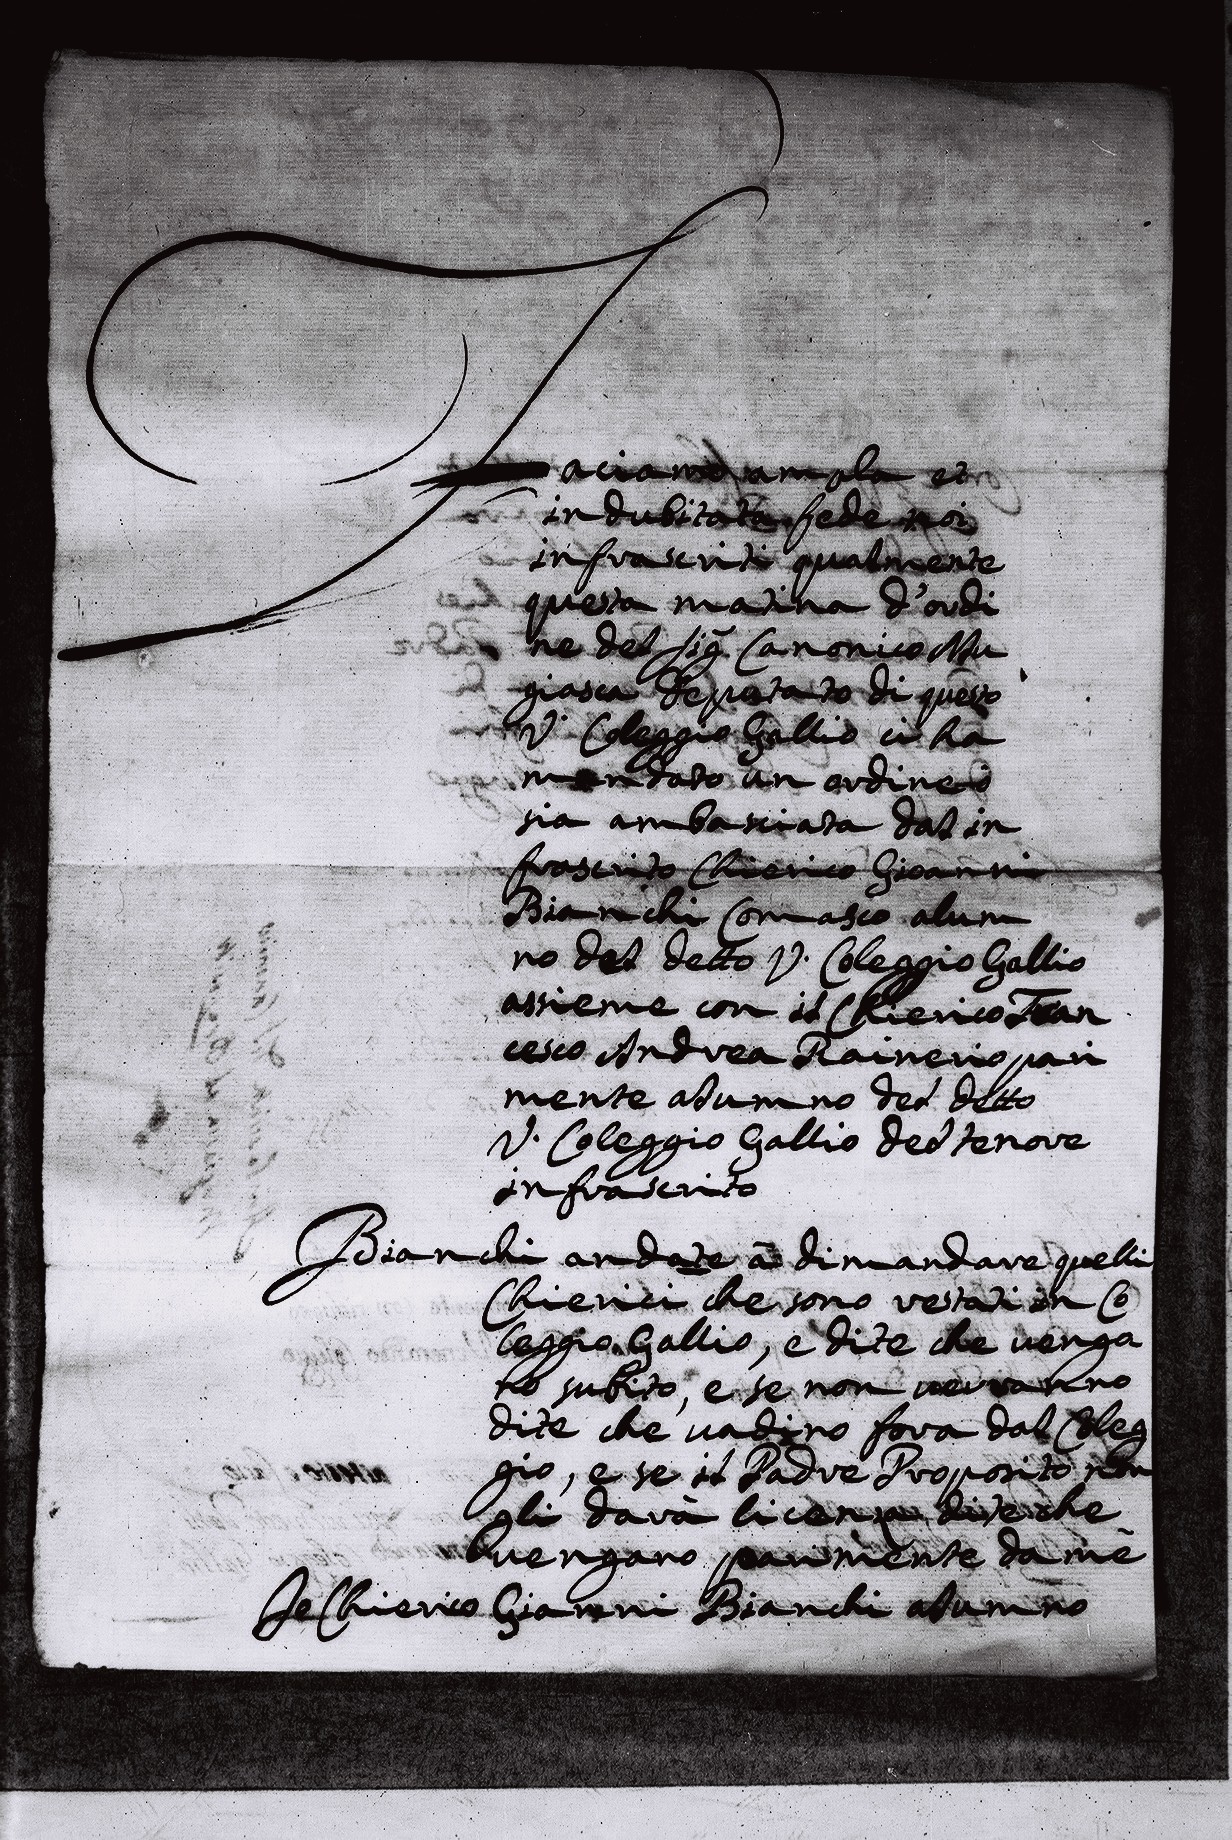 Faciamo ampla et
indubitata fede noi
infrascritti qualmente
questa matina d'ordi
ne del Sig. Canonico Mu
giasca deputato di questo
V. Coleggio Gallio ci ha
mandato un ordine ò
sia ambasciata dal in
frascrito Chierico Gioanni
Bianchi Comasco alum
no del detto V. Coleggio Gallio
assieme con il Chierico Fran
cesco Andrea Rainerio pari
mente alumno del detto
V. Coleggio Gallio del tenore
infrascrito
Bianchi andate à dimandare quelli
Chierici che sono restati in Co
leggio Gallio, e dite che venga
no subito, e se non verranno
dite che vadino fora dal Coleg
gio, e se il Padre Proposito non
gli darà licenza dite che
vengano parimente da mè
Io Chierico Gianni Bianchi alumno